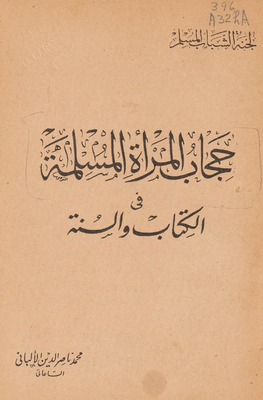 396
A32hA
لجنة الشباب المسلم
حجاب المرأة المسلمة
في
الكتاب والسنة
محمد ناصر الدين الألباني
الساعاتي